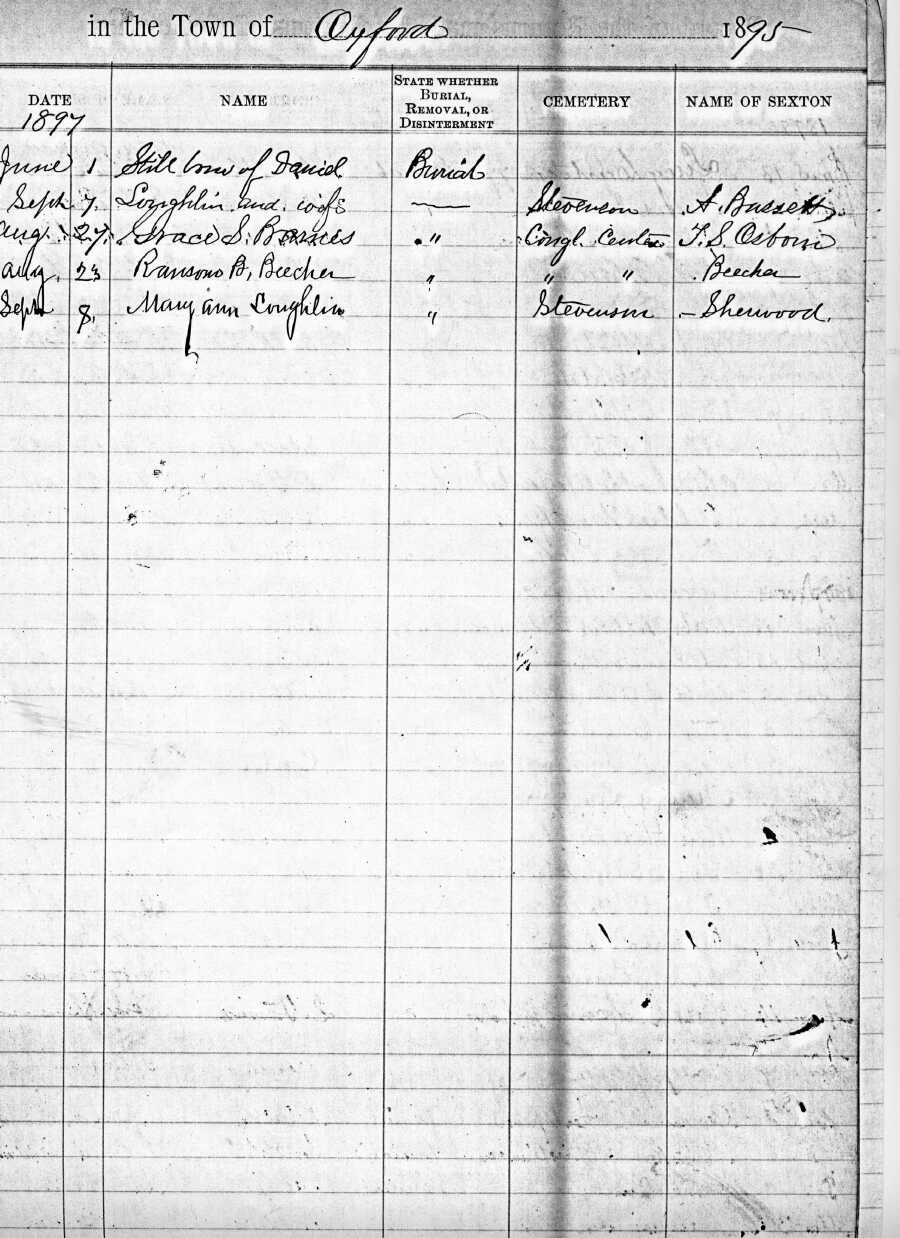 in the Town of Oxford 1895
DATE NAME STATE WHETHER BURIAL, REMOVAL, OR DISINTERMENT CEMETERY NAME OF SEXTON
1897
June 1 Still born of Daniel Burial
Sept 7. Loughlin and wife — Stevenson A. Bassett
Aug. 27. Grace S. " Congl. Center T. S. Osborn
Aug. 23 Ransom B. Beecher " " " Beecher
Sept 8. Mary Ann Loughlin " Stevenson – Sherwood.